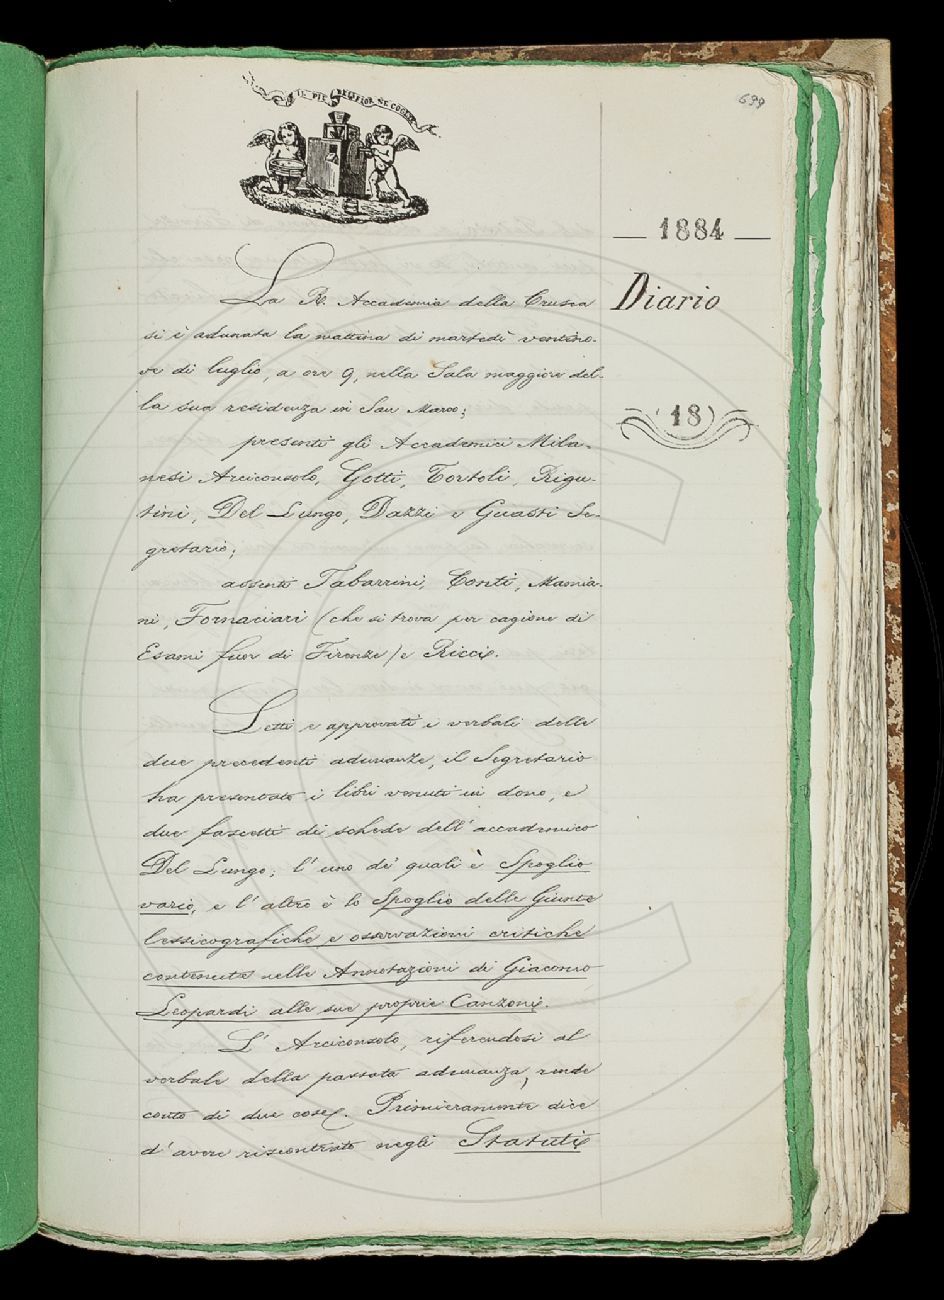 IL PIÙ BEL FIOR NE COGLIE
699
— 1884 —
Diario
(18)
La R. Accademia della Crusca
si è adunata la mattina di martedì ventino-
ve di luglio, a ore 9, nella Sala maggiore del-
la sua residenza in San Marco;
presenti gli Accademici Mila-
nesi Arciconsolo, Gotti, Tortoli, Rigu-
tini, Del Lungo, Dazzi e Guasti Se-
gretario;
assenti Tabarrini, Conti, Mamia-
ni, Fornaciari (che si trova per cagione di
Esami fuor di Firenze) e Ricci.
Letti e approvati i verbali delle
due precedenti adunanze, il Segretario
ha presentato i libri venuti in dono, e
due fascetti di schede dell'accademico
Del Lungo; l'uno de' quali è Spoglio
vario, e l'altro è lo Spoglio delle Giunte
lessicografiche e osservazioni critiche
contenute nelle Annotazioni di Giacomo
Leopardi alle sue proprie Canzoni.
L'Arciconsolo, riferendosi al
verbale della passata adunanza, rende
conto di due cose. Primieramente dice
d'avere riscontrato negli Statuti